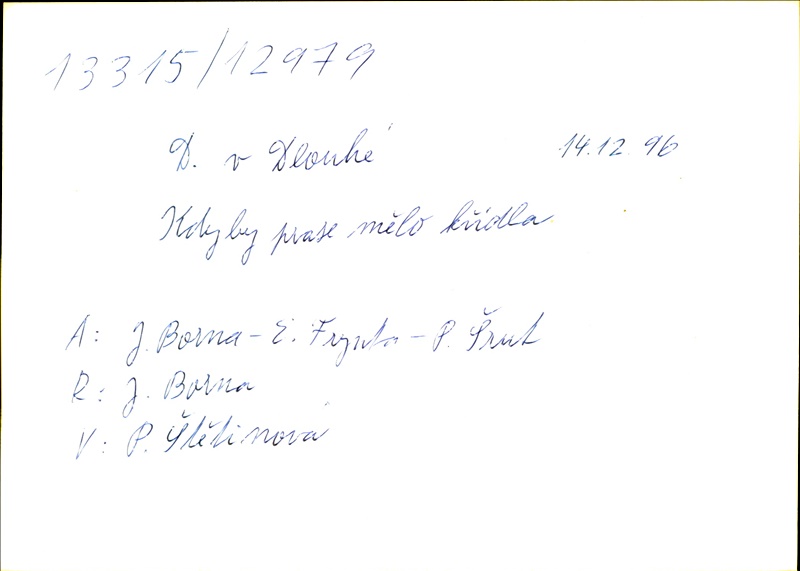 13315/12979
D. v Dlouhé 14.12.96
Kdyby prase mělo křídla
A: J. Borna - E. Frynta - P. Šrut
R: J. Borna
V: P. Štětinová